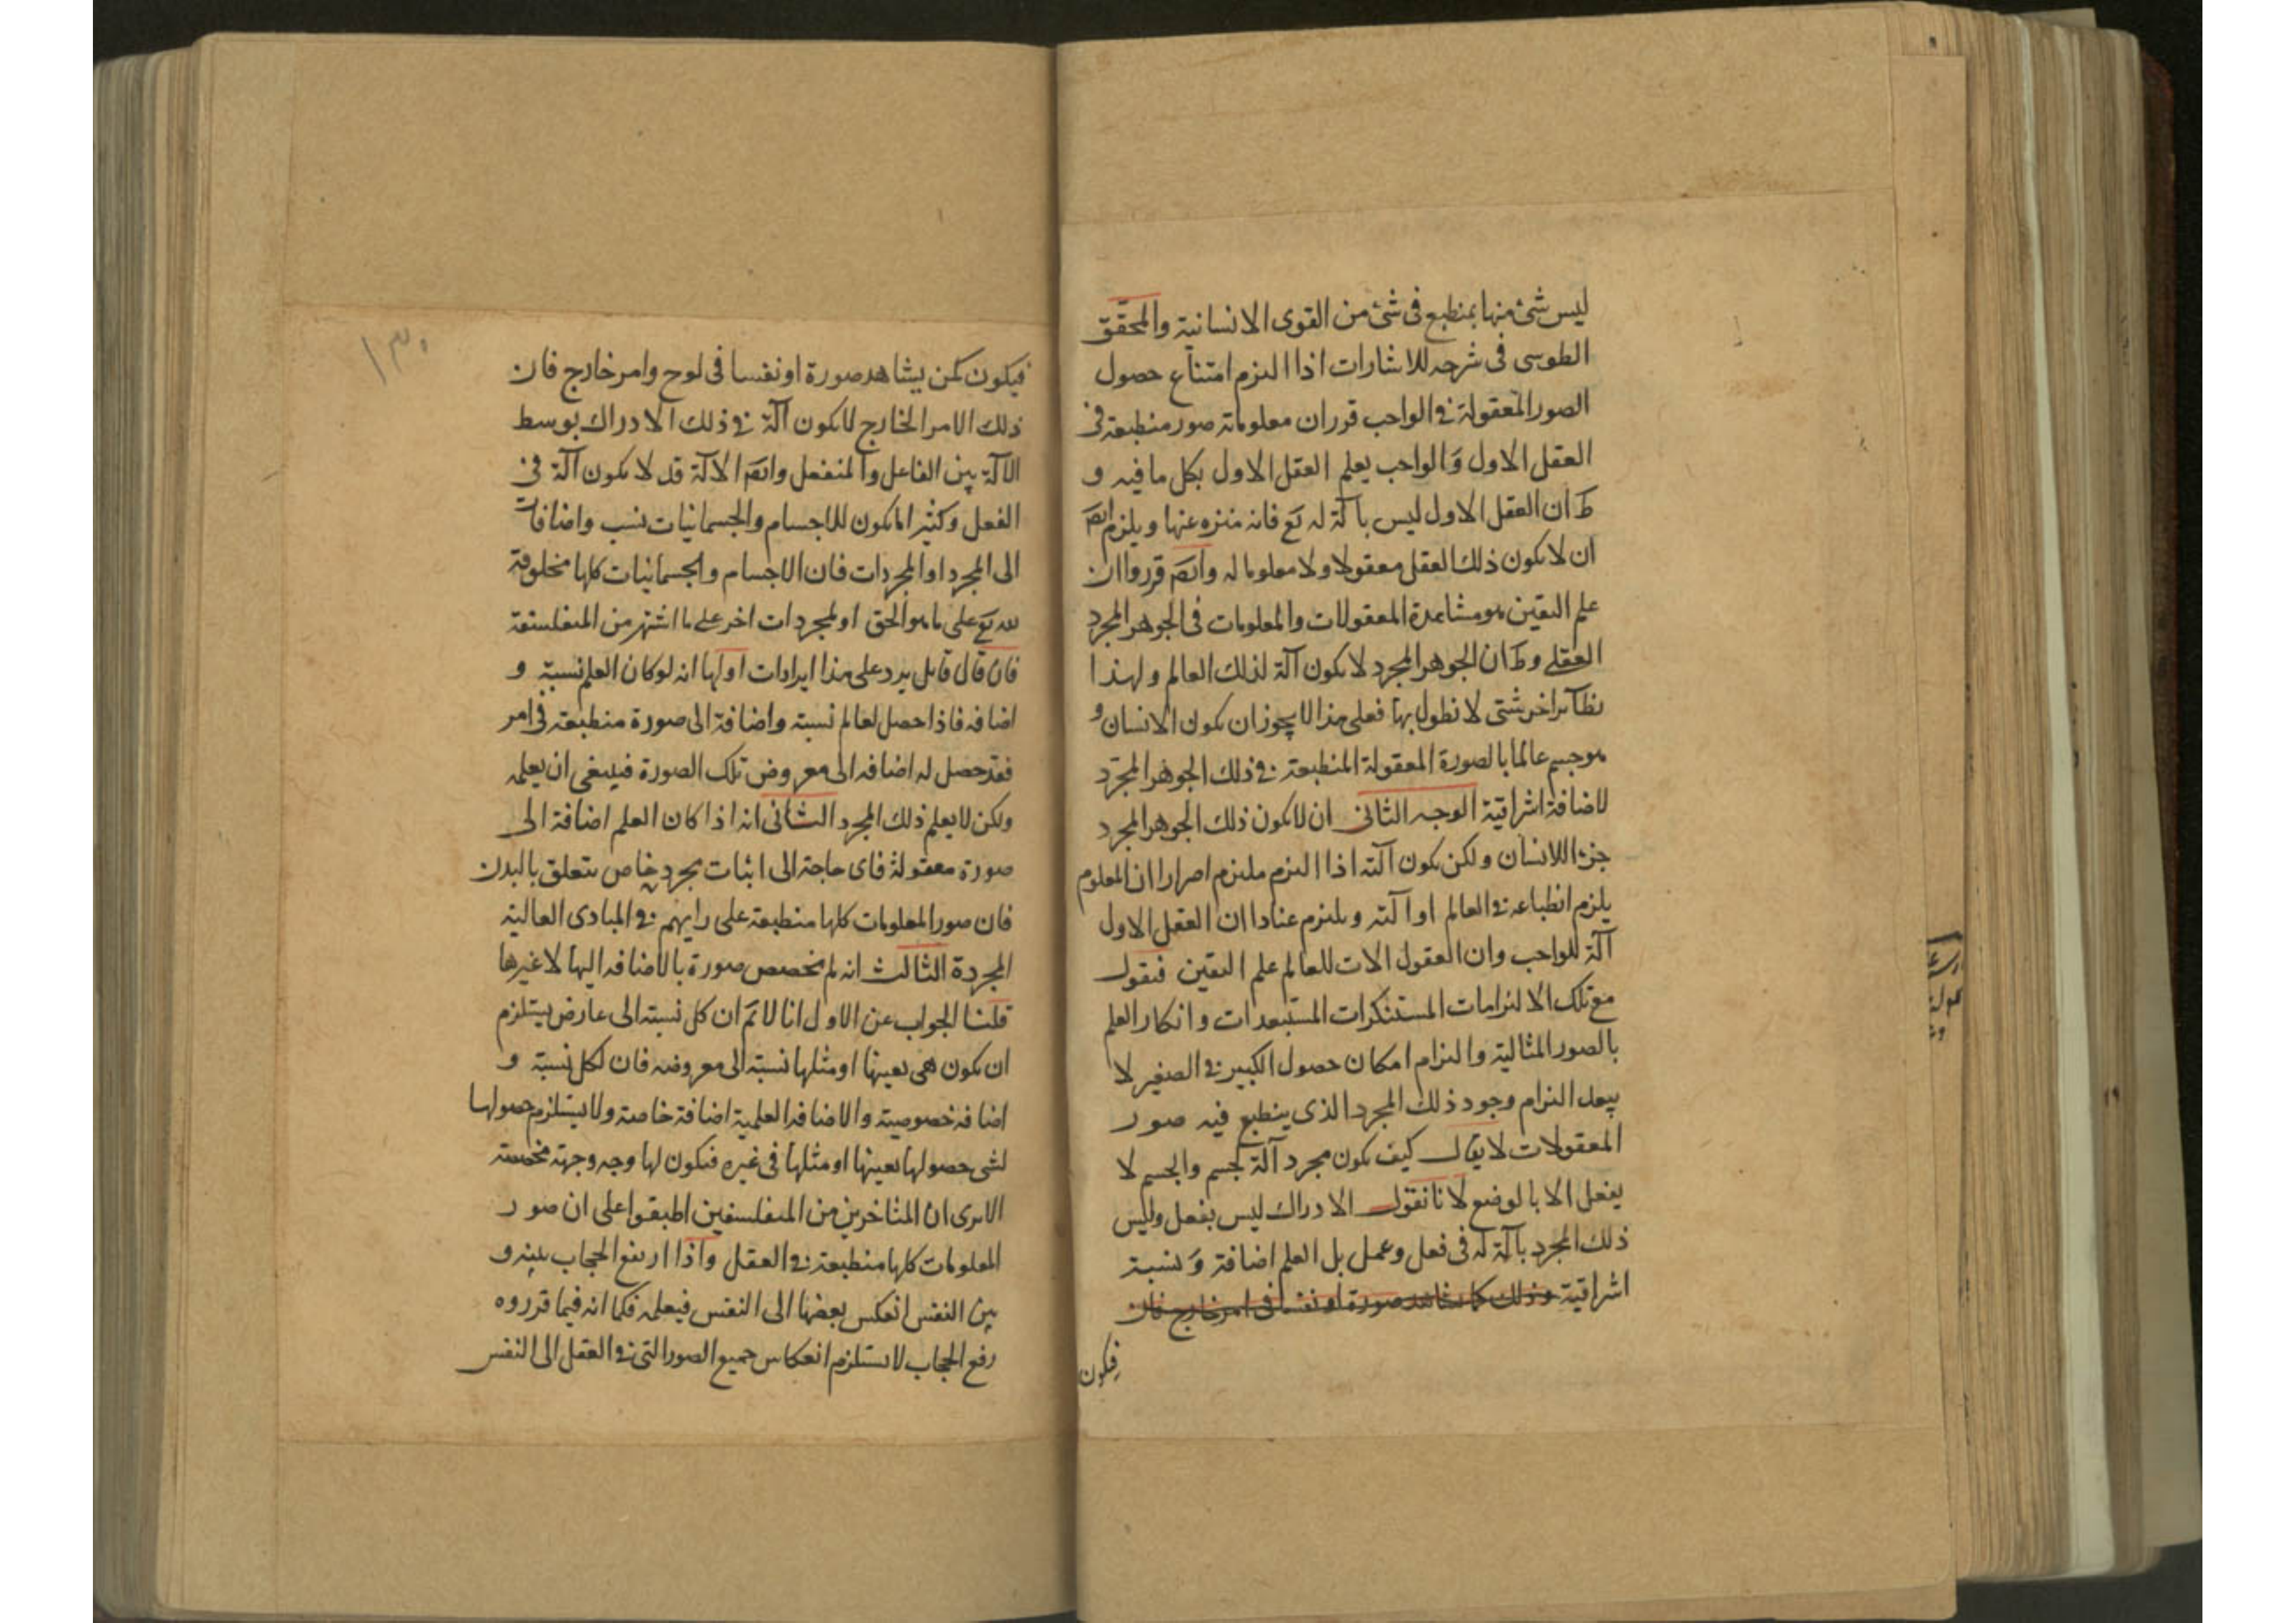 ليس شئ منها بمنطبع فى شئ من القوى الانسانية والمحقق
الطوسى فى شرحه للاشارات اذا التزم امتناع حصول
الصور المعقولة فى الواجب قرر ان معلوماته صور منطبعة فى
العقل الاول والواجب يعلم العقل الاول بكل ما فيه و
ظ ان العقل الاول ليس بآلة له تع فانه منزه عنها ويلزم ايضا
ان لا يكون ذلك العقل معقولا ولا معلوما له وايضا قرروا ان
علم اليقين هو مشاهدة المعقولات والمعلومات فى الجوهر المجرد
العقلى وظ ان الجوهر المجرد لا يكون آلة لذلك العالم ولهذا
نظآئر اخر شتى لا نطول بها فعلى هذا لا يجوز ان يكون الانسان و
هو جسم عالما بالصورة المعقولة المنطبعة فى ذلك الجوهر المجرد
لاضافة اشراقية الوجه الثانى ان لا يكون ذلك الجوهر المجرد
جزءا للانسان ولكن يكون آلته اذا التزم ملتزم اصرارا ان المعلوم
يلزم انطباعه فى العالم او آلته ويلتزم عنادا ان العقل الاول
آلة للواجب وان العقول الات للعالم علم اليقين فنقول
مع تلك الالتزامات المستنكرات المستبعدات وانكار العلم
بالصور المثالية والتزام امكان حصول الكبير فى الصغير لا
يبعد التزام وجود ذلك المجرد الذى ينطبع فيه صور
المعقولات لا يقال كيف يكون مجرد آلة لجسم والجسم لا
يفعل الا بالوضع لانا نقول الادراك ليس بفعل وليس
ذلك المجرد بآلة له فى فعل وعمل بل العلم اضافة ونسبة
اشراقية وذلك كما يشاهد صورة او نفسا فى امر خارج فان
فيكون
١٣٠
فيكون كمن يشاهد صورة او نفسا فى لوح وامر خارج فان
ذلك الامر الخارج لا يكون آلة فى ذلك الادراك بوسط
الآلة بين الفاعل والمنفعل وايضا الالة قد لا يكون آلة فى
الفعل وكثيرا ما يكون للاجسام والجسمانيات نسب واضافات
الى المجرد او المجردات فان الاجسام والجسمانيات كلها مخلوقة
لله تع على ما هو الحق او لمجردات اخر على ما اشتهر من المتفلسفة
فان قال قايل يرد على هذا ايرادات اولها انه لو كان العلم نسبة و
اضافه فاذا حصل لعالم نسبة واضافة الى صورة منطبعة فى امر
فقد حصل له اضافه الى معروض تلك الصورة فينبغى ان يعلمه
ولكن لا يعلم ذلك المجرد الثانى انه اذا كان العلم اضافة الى
صورة معقولة فاى حاجة الى اثبات مجرد خاص يتعلق بالبدن
فان صور المعلومات كلها منطبعة على رايهم فى المبادى العالية
المجردة الثالث انه لم تخصص صورة بالاضافه اليها لا غيرها
قلنا الجواب عن الاول انا لا نم ان كل نسبة الى عارض يستلزم
ان يكون هى بعينها او مثلها نسبة الى معروضه فان لكل نسبة و
اضافه خصوصية والاضافه العلمية اضافة خاصة ولا يستلزم حصولها
لشى حصولها بعينها او مثلها فى غيره فيكون لها وجه وجهة مخصصة
الا يرى ان المتاخرين من المتفلسفين اطبقوا على ان صور
المعلومات كلها منطبعة فى العقل واذا ارتفع الحجاب بينه و
بين النفس انعكس بعضها الى النفس فيعلمه فكما انه فيما قرروه
رفع الحجاب لا يستلزم انعكاس جميع الصور التى فى العقل الى النفس